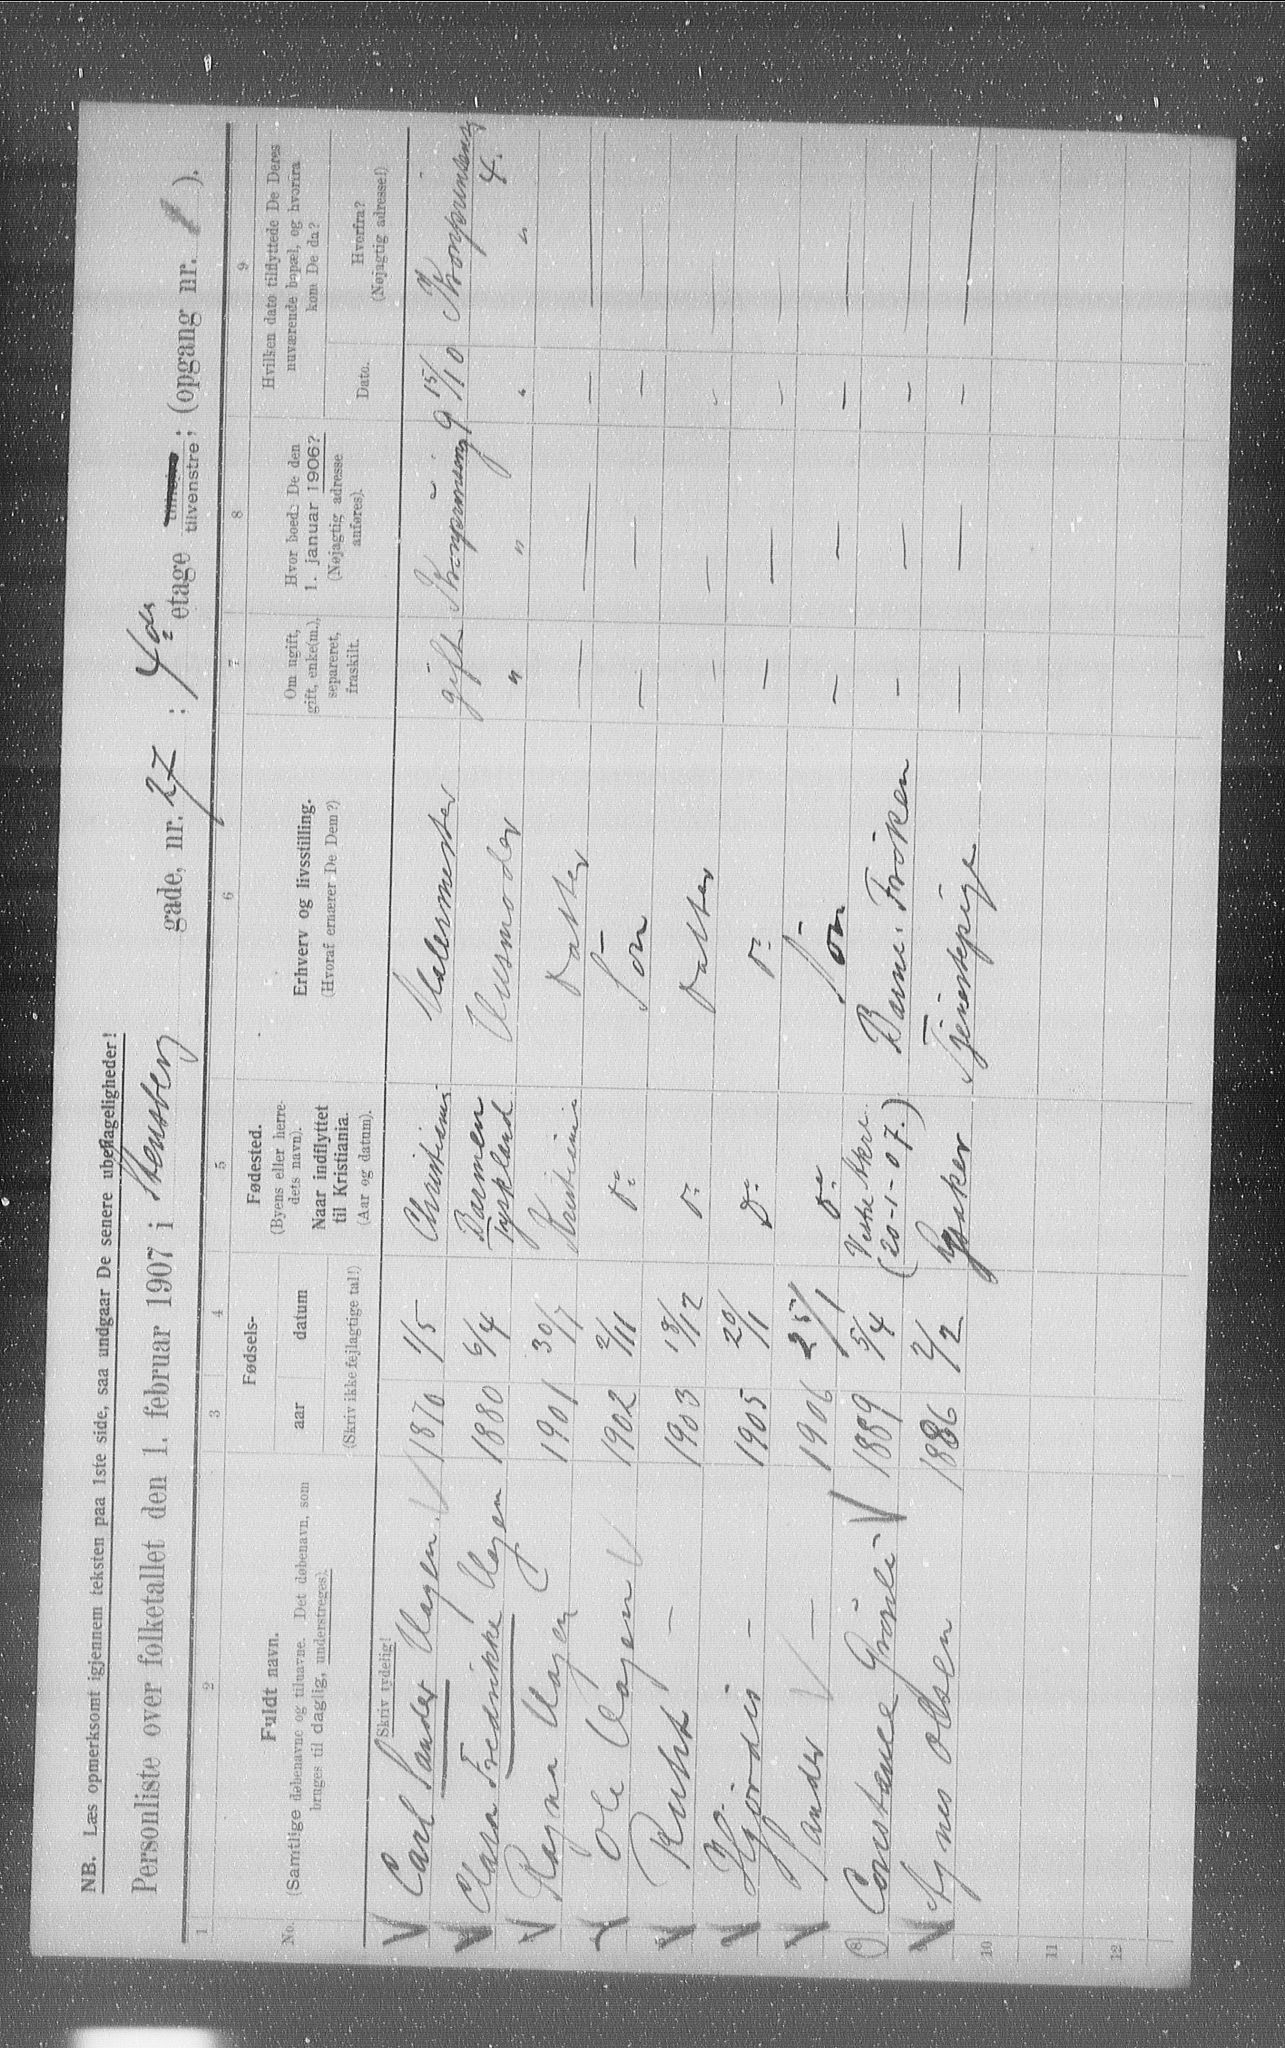 NB. Læs opmerksomt igjennem teksten paa 1ste side, saa undgaar De senere ubehageligheder!
Personliste over folketallet den 1. februar 1907 i Stensberg gade, nr. 27 ; 4de etage tilvenstre; (opgang nr. ).
1 2 3 4 5 6 7 8 9
No. Fuldt navn. (Samtlige døbenavne og tilnavne. Det døbenavn, som bruges til daglig, understreges).
Fødsels- aar datum
(Skriv ikke fejlagtige tal!)
Fødested. (Byens eller herredets navn). Naar indflyttet til Kristiania. (Aar og datum).
Erhverv og livsstilling. (Hvoraf ernærer De Dem?)
Om ugift, gift, enke(m.), separeret, fraskilt.
Hvor boede De den 1. januar 1906? (Nøjagtig adresse anføres).
Hvilken dato tilflyttede De Deres nuværende bopæl, og hvorfra kom De da?
Dato. Hvorfra? (Nøjagtig adresse!)
Skriv tydelig!
Carl Sander Hagen 1870 1/5 Christiania Malermester gift 15/10 4.
Clara Fredrikke Hagen 1880 6/4 Barmen Tyskland Husmoder " " " "
Ragna Hagen 1901 30/7 Kristiania Datter — — — —
Ole Hagen 1902 2/11 do Søn — — — —
Ruth — 1903 18/12 do Datter — —
Hjördis — 1905 20/1 do do — — — —
Sander — 1906 25/1 do Søn — — — —
8 Constance Grönli 1889 5/4 Vestre Aker (20-1-07.) Barne. Fröken — — — —
Agnes Olsen 1886 2/2 Tjenestepige — — — —
10
11
12